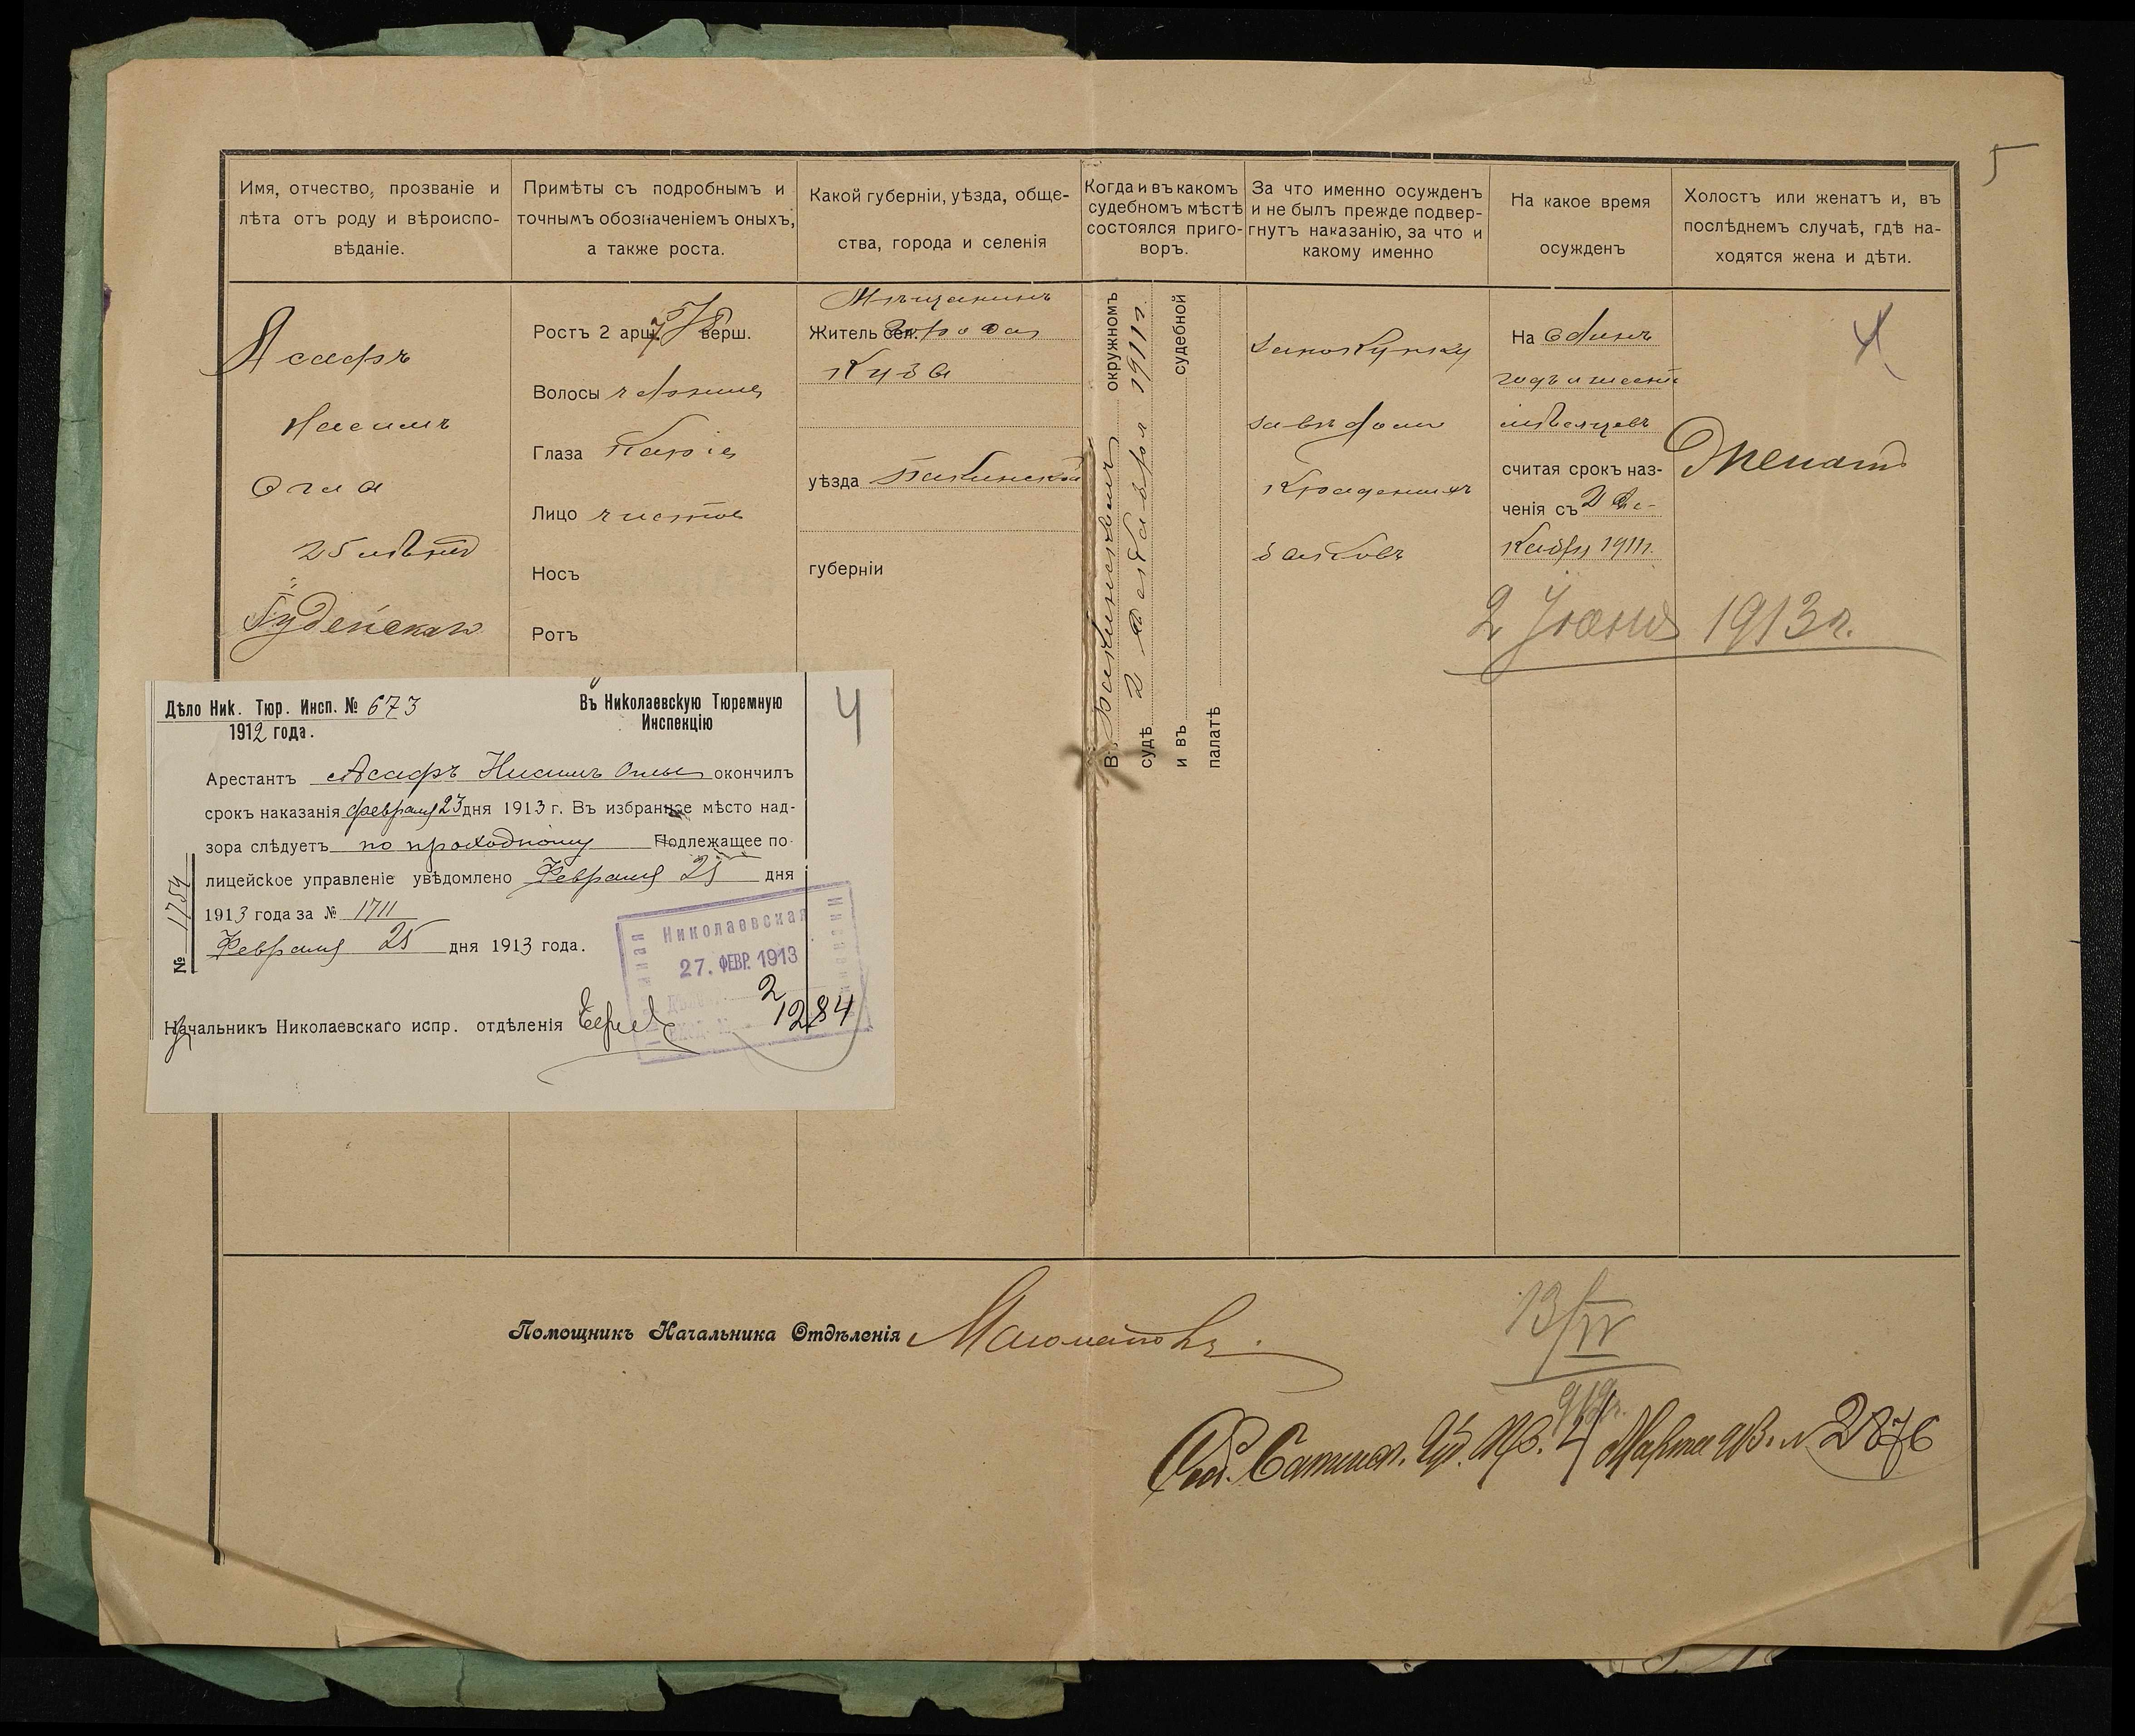 5
Имя, отчество, прозваніе и
лѣта отъ роду и вѣроиспо-
вѣданіе.
Примѣты съ подробнымъ и
точнымъ обозначеніемъ оныхъ,
а также роста.
Какой губерніи, уѣзда, обще-
ства, города и селенія
Когда и въ какомъ
судебномъ мѣстѣ
состоялся приго-
воръ.
За что именно осужденъ
и не былъ прежде подвер-
гнутъ наказанію, за что и
какому именно
На какое время
осужденъ
Холостъ или женатъ и, въ
послѣднемъ случаѣ, гдѣ на-
ходятся жена и дѣти.
Асафъ
Насимъ
Огла
25 лѣтъ
Іудейскаго
Ростъ 2 арш. верш.
Волосы черные
Глаза Каріе
Лицо чистое
Носъ
Ротъ
Мѣщанинъ
Житель сел. города
Куба
уѣзда Бакинской
губерніи
Въ Бакинскомъ окружномъ
судѣ 2 декабря 1911 г.
и въ судебной
палатѣ
за покупку
завѣдомо
краденыхъ
На одинъ
годъ и шесть
мѣсяцевъ
считая срокъ наз-
ченія съ 2 Де-
кабря 1911г.
2 Іюня 1913 г.
Женатъ
Дѣло Ник. Тюр. Инсп. № 673
1912 года.
Въ Николаевскую Тюремную
Инспекцію
4
Арестантъ Асафъ Нисимъ Оглы окончилъ
срокъ наказанія февраля 23 дня 1913 г. Въ избранное мѣсто над-
зора слѣдуетъ по проходному Подлежащее по-
лицейское управленіе увѣдомлено Февраля 25 дня
1913 года за № 1711
Февраля 25 дня 1913 года.
№ 1754
Николаевская
27. ФЕВР. 1913
2
1284
Начальникъ Николаевскаго испр. отдѣленія
Помощникъ Начальника Отдѣленія
13/IV
912г.
4 Марта 913 г. № 2876